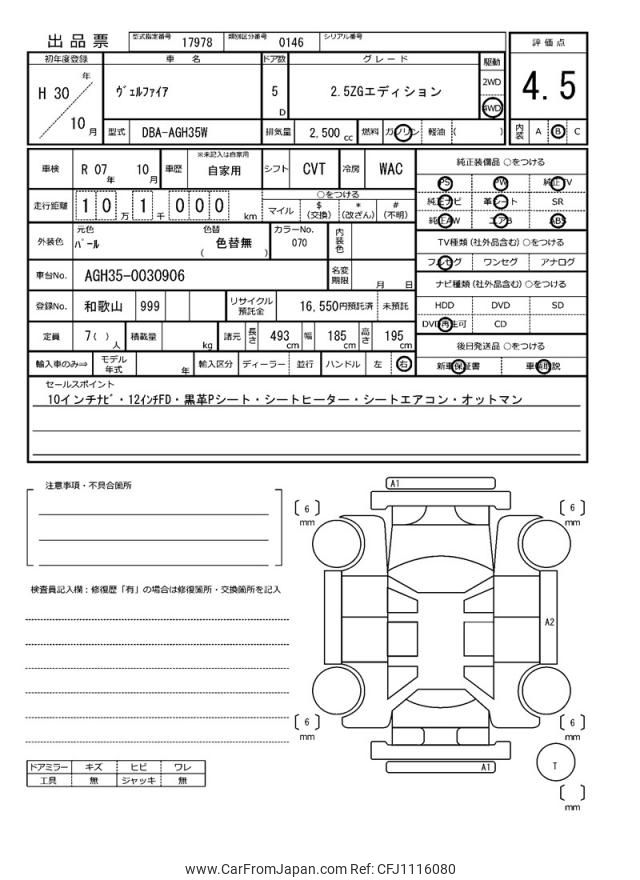 出品票 型式指定番号 17978 類別区分番号 0146 シリアル番号
評価点
4.5
内装 A B C
初年度登録 車 名 ドア数 グレード 駆動
H 30 年 10 月
ヴェルファイア 5 D 2.5ZGエディション 2WD 4WD
型式 DBA-AGH35W 排気量 2,500 cc 燃料 ガソリン 軽油 ( )
車検 R 07 年 10 月 車歴 ※未記入は自家用 自家用 シフト CVT 冷房 WAC
走行距離 1 0 万 1 千 0 0 0 km
○をつける
マイル $ (交換) * (改ざん) # (不明)
外装色 元色 パール 色替 ( 色替無 ) カラーNo. 070 内装色
車台No. AGH35-0030906 名変期限 月 日
登録No. 和歌山 999 リサイクル預託金 16,550円預託済 未預託
定員 7( ) 人 積載量 kg 諸元 長さ 493 cm 幅 185 cm 高さ 195 cm
輸入車のみ⇒ モデル年式 年 輸入区分 ディーラー 並行 ハンドル 左 右
純正装備品 ○をつける
PS PW 純正TV
純正ナビ 革シート SR
純正AW エアB ABS
TV種類 (社外品含む) ○をつける
フルセグ ワンセグ アナログ
ナビ種類 (社外品含む) ○をつける
HDD DVD SD
DVD再生可 CD
後日発送品 ○をつける
新車保証書 車輌取説
セールスポイント
10インチナビ・12インチFD・黒革Pシート・シートヒーター・シートエアコン・オットマン
注意事項・不具合箇所
検査員記入欄：修復歴「有」の場合は修復箇所・交換箇所を記入
ドアミラー キズ ヒビ ワレ
工具 無 ジャッキ 無
A1
6 mm
6 mm
A2
6 mm
6 mm
A1
T
mm
www.CarFromJapan.com Ref: CFJ1116080